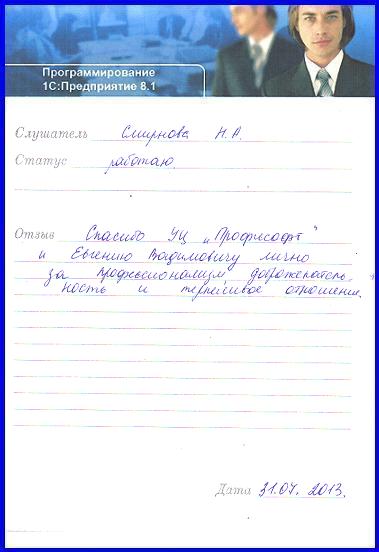 Программирование
1С:Предприятие 8.1
Слушатель Смирнова Н.А.
Статус работаю
Отзыв Спасибо УЦ „Профисофт"
и Евгению Вадимовичу лично
за профессионализм, доброжелатель-
ность и терпеливое отношение.
Дата 31.07.2013.